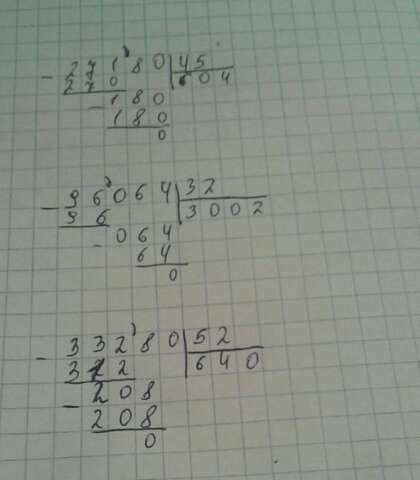 - 27180 45
270 604
- 180
180
0
- 96064 32
96 3002
- 064
64
0
- 33280 52
312 640
- 208
208
0